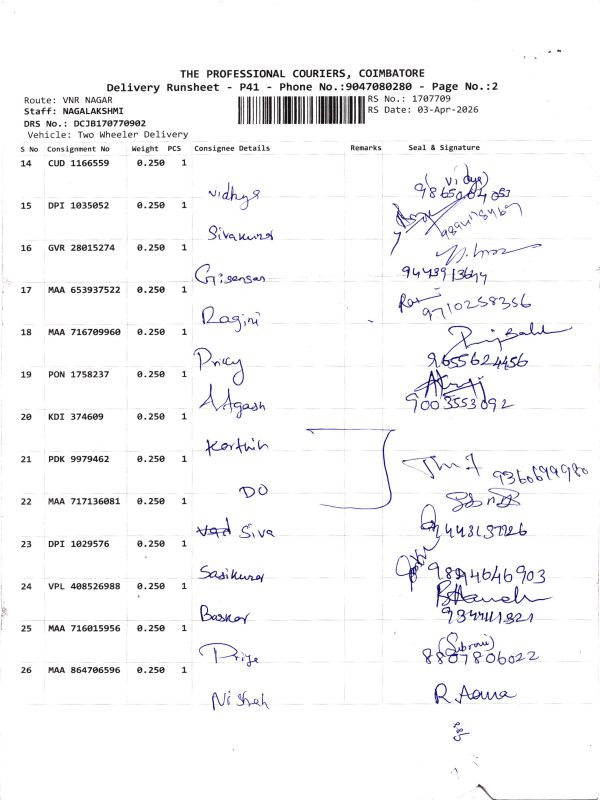 THE PROFESSIONAL COURIERS, COIMBATORE
Delivery Runsheet - P41 - Phone No.:9047080280 - Page No.:2
Route: VNR NAGAR
RS No.: 1707709
Staff: NAGALAKSHMI
RS Date: 03-Apr-2026
DRS No.: DCJB170770902
Vehicle: Two Wheeler Delivery
S No Consignment No Weight PCS Consignee Details Remarks Seal & Signature
14 CUD 1166559 0.250 1
Vidhya (Vidya)
15 DPI 1035052 0.250 1
Sivakumar
16 GVR 28015274 0.250 1
17 MAA 653937522 0.250 1
Ragini 9710258356
18 MAA 716709960 0.250 1
Pricy 9655624456
19 PON 1758237 0.250 1
Agash 9003553092
20 KDI 374609 0.250 1
Karthik
21 PDK 9979462 0.250 1
DO 9360699980
22 MAA 717136081 0.250 1
Siva
23 DPI 1029576 0.250 1
Sasikumar 9894646903
24 VPL 408526988 0.250 1
Baskar
25 MAA 716015956 0.250 1
Priya 8807806022
26 MAA 864706596 0.250 1